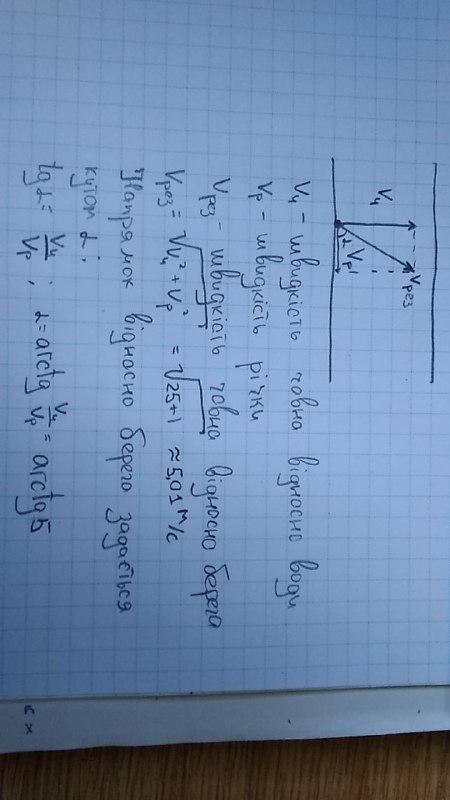 Vч
Vрез
α
Vр
Vч - швидкість човна відносно води
Vр - швидкість річки
Vрез - швидкість човна відносно берега
Vрез = √Vч² + Vр² = √25+1 ≈ 5,01 м/с
Напрямок відносно берега задається
кутом α:
tg α = Vч/Vр ; α = arctg Vч/Vр = arctg 5